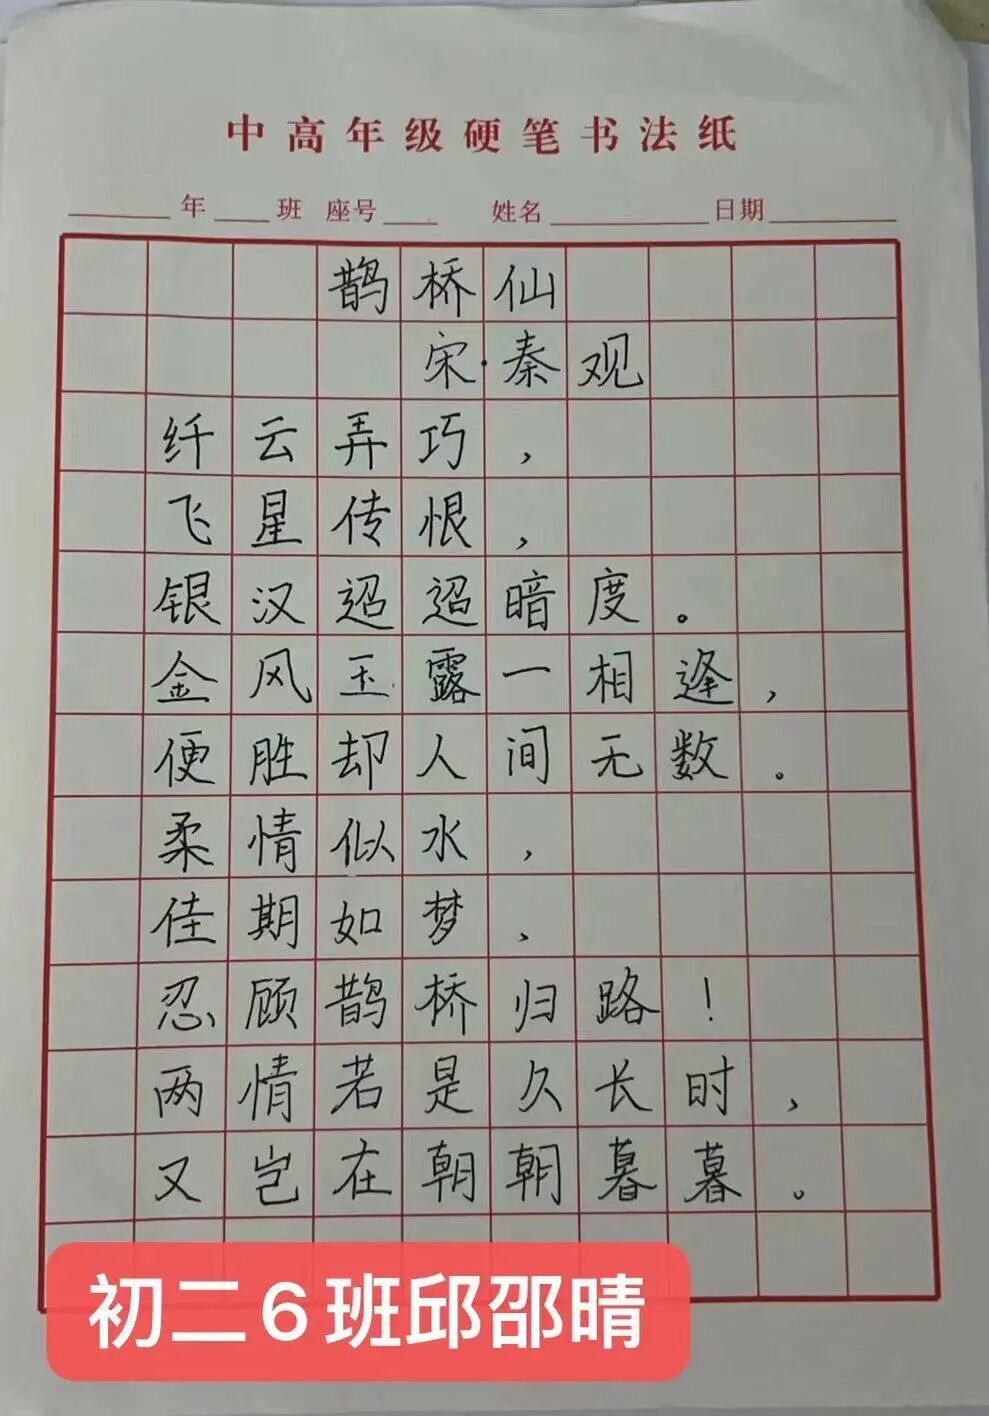 中高年级硬笔书法纸
年 班 座号 姓名 日期
鹊桥仙
宋·秦观
纤云弄巧，
飞星传恨，
银汉迢迢暗度。
金风玉露一相逢，
便胜却人间无数。
柔情似水，
佳期如梦，
忍顾鹊桥归路！
两情若是久长时，
又岂在朝朝暮暮。
初二6班邱邵晴